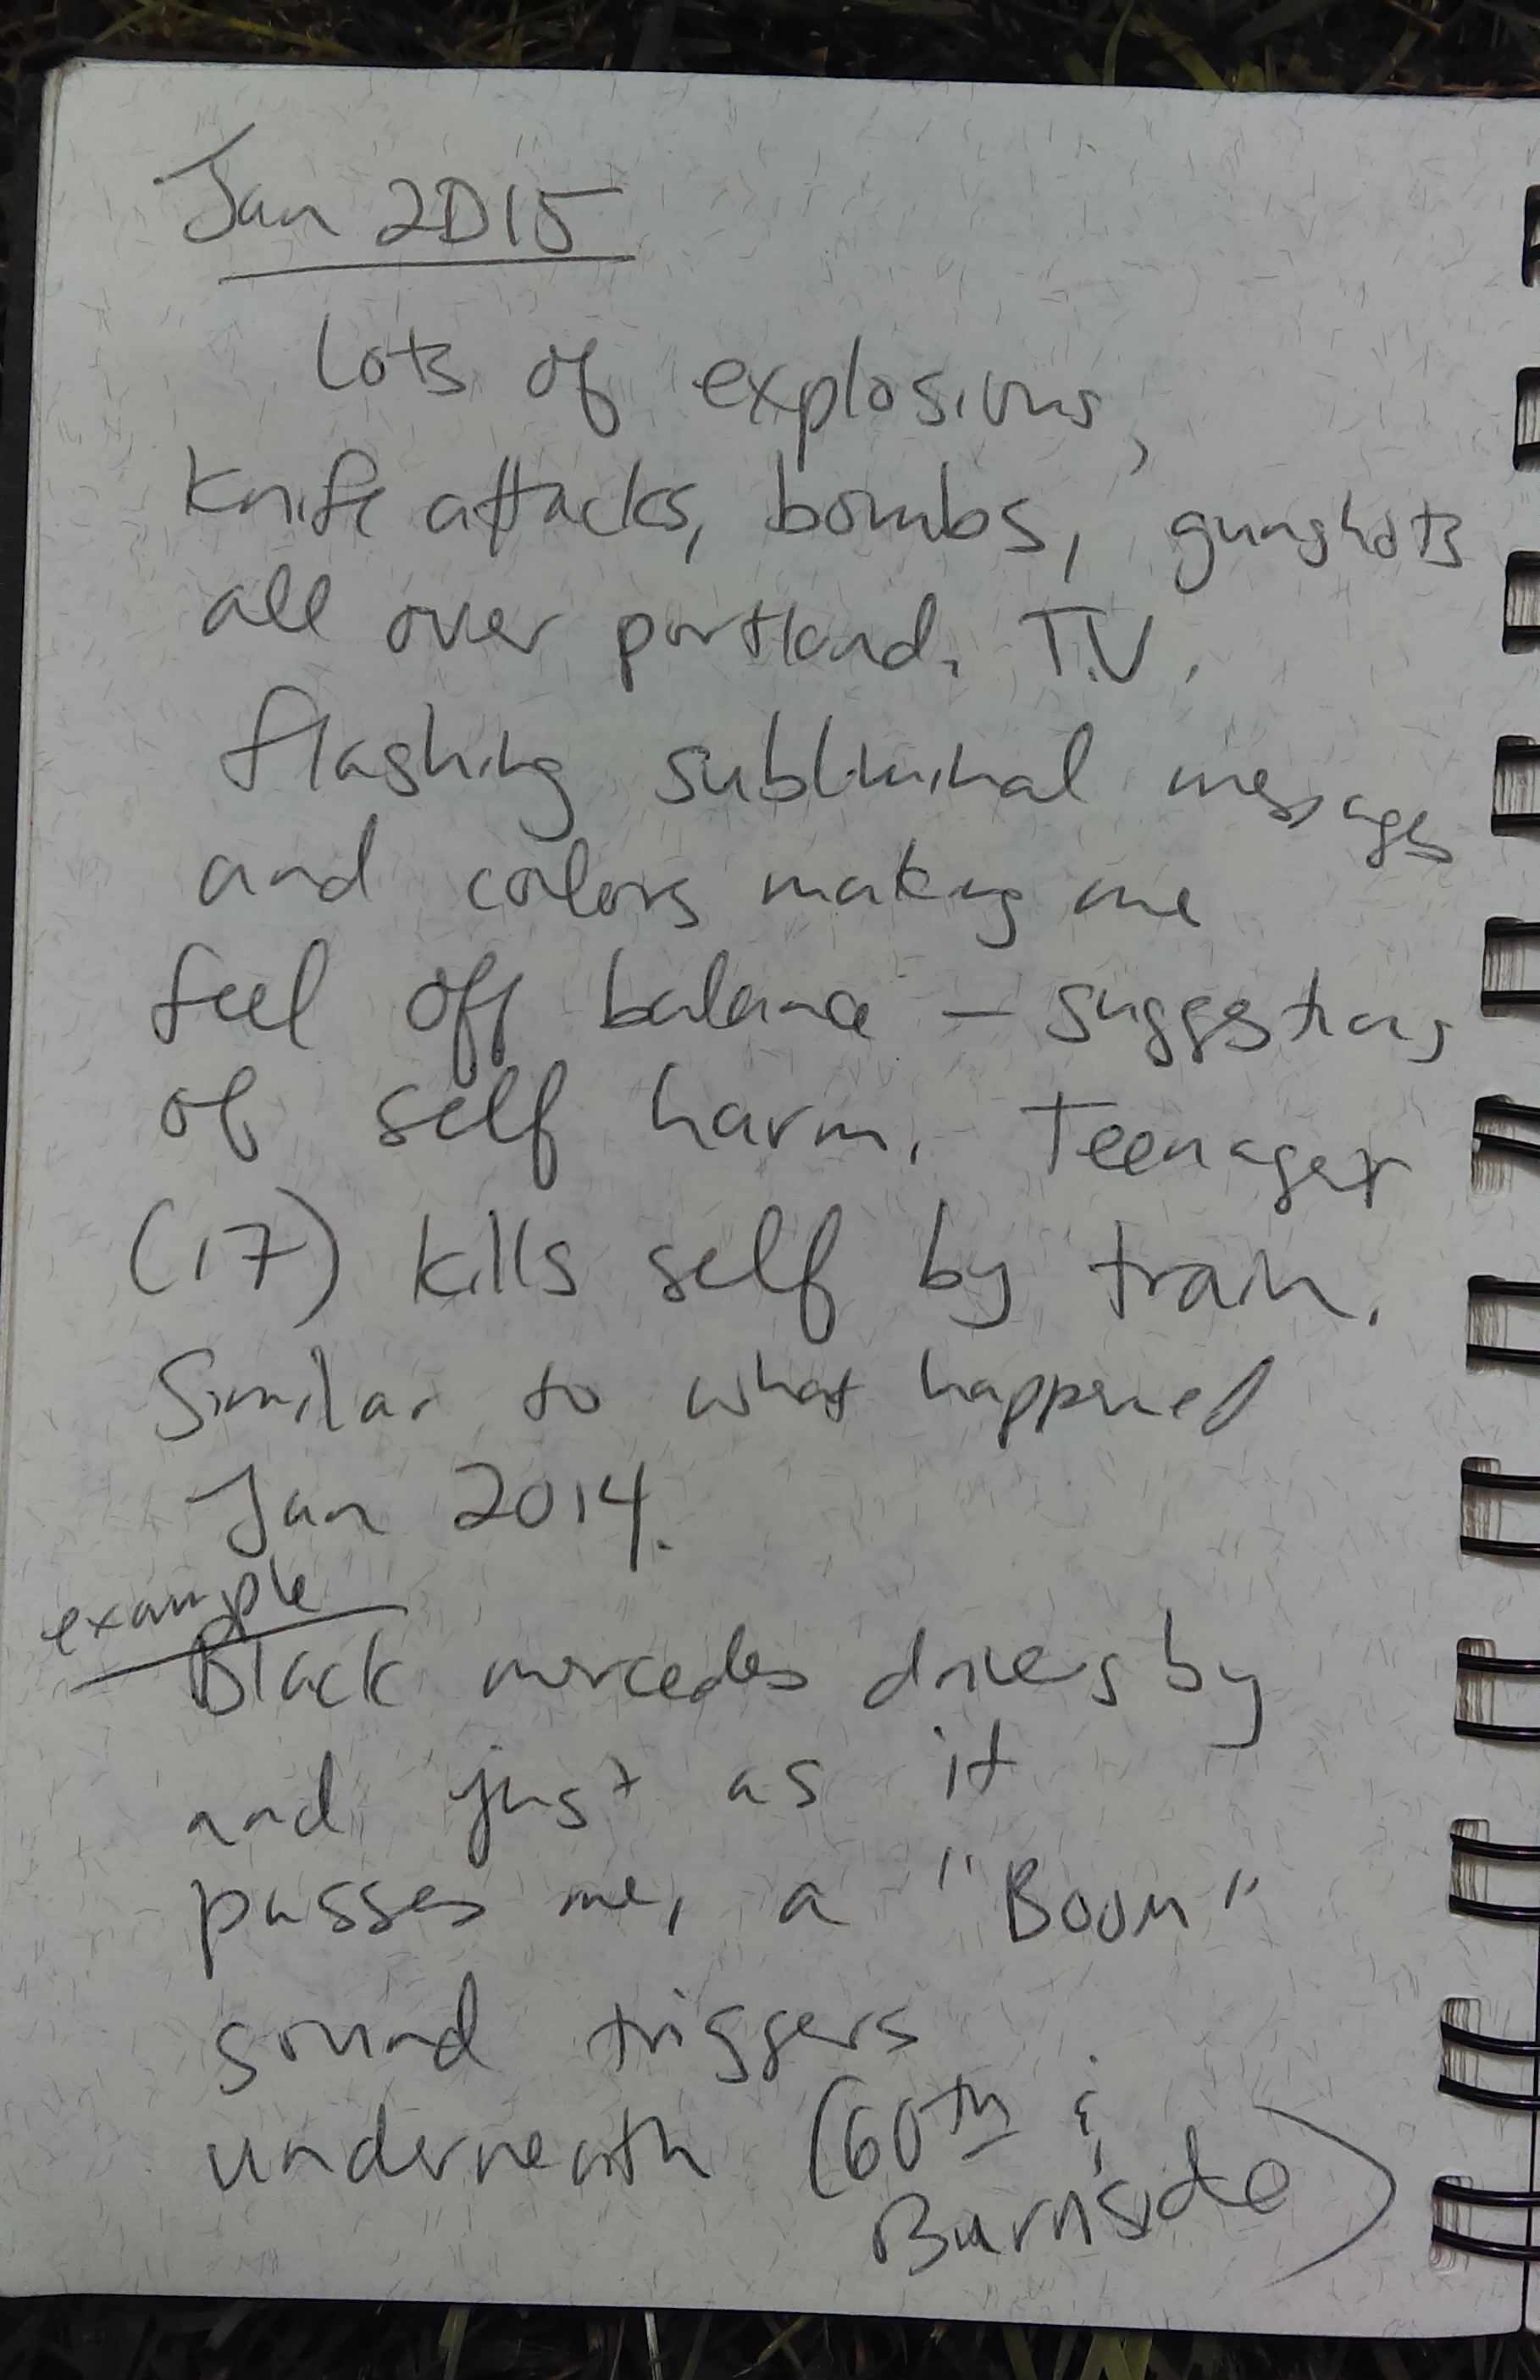 Jan 2015
Lots of explosions,
Knife attacks, bombs, gunshots
all over portland. T.V.
flashing subliminal messages
and colors making me
feel off balance – suggestions
of self harm. Teenager
(17) kills self by train.
Similar to what happened
Jan 2014.
example
Black mercedes drives by
and just as it
passes me, a "Boom"
sound triggers
underneath (60th &
Burnside)